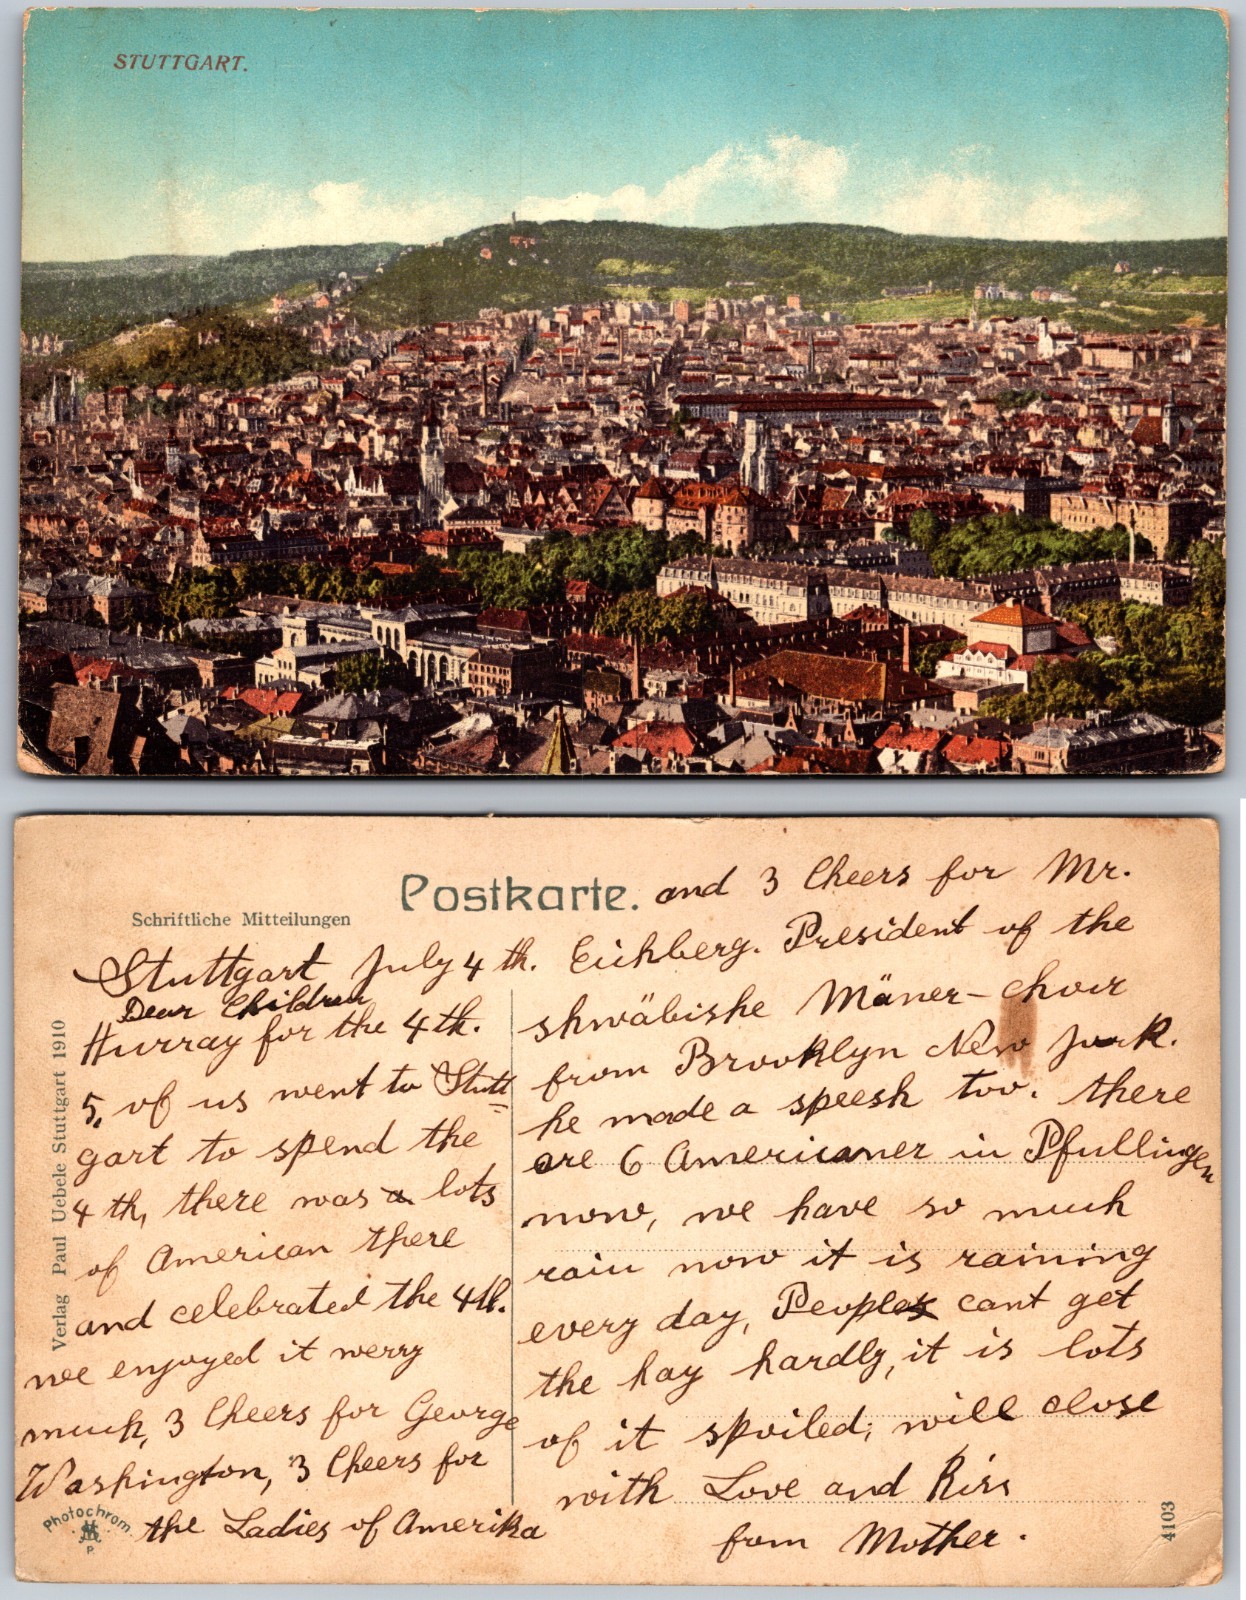 STUTTGART.
Postkarte.
Schriftliche Mitteilungen
Stuttgart July 4 th.
Dear Children
Hurray for the 4 th.
5, of us went to Stutt
gart to spend the
4 th, there was a lots
of American there
and celebrated the 4th.
we enjoyed it werry
much, 3 Cheers for George
Washington, 3 Cheers for
the Ladies of Amerika
and 3 Cheers for Mr.
Eichberg. President of the
shwäbishe Mäner-choir
from Brooklyn New York.
he made a speesh too. there
are 6 Americaner in Pfullingen
now, we have so much
rain now it is raining
every day, People cant get
the hay hardly, it is lots
of it spoiled, will close
with Love and Kiss
from Mother.
Verlag Paul Uebele Stuttgart 1910
Photochrom
P.
4103